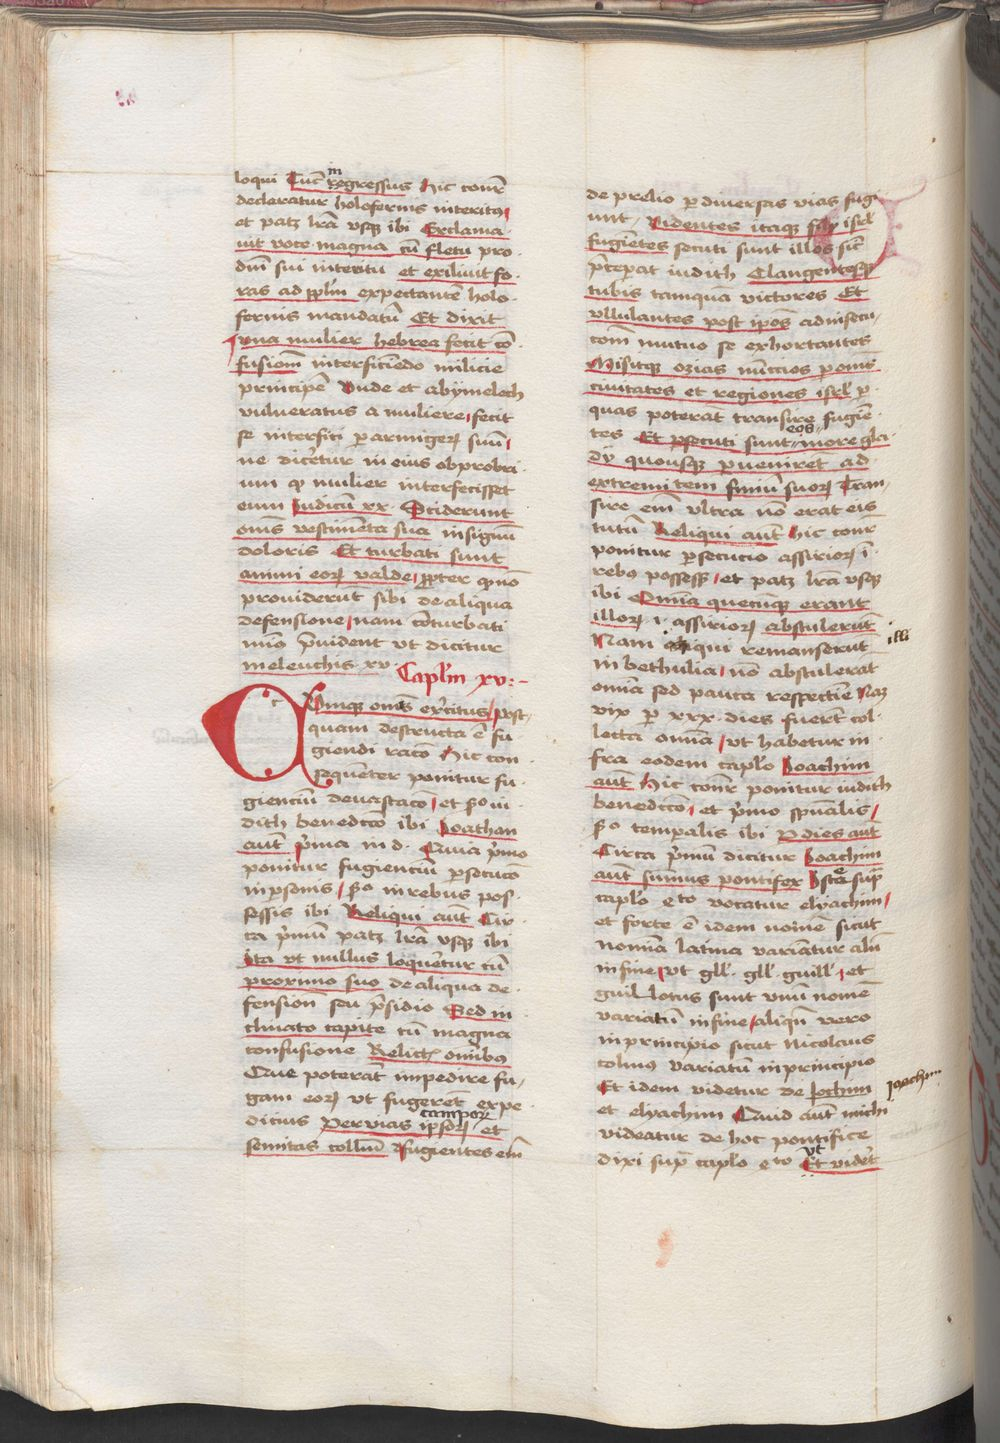 loqui Tūc ingressus hic conr̄
declaratur holofernis interitꝰ
et patꝫ lr̄a vsqꝫ ibi Exclama
uit voce magna cū fletu pro
dn̄i sui interitu et exiliuit fo
ras ad pplm̄ expectantē holo
fernis mandatū Et dixit
vna mulier hebrea fecit cō
fusionē interficiēdo milicie
principē vnde et abymelech
vulneratus a muliere fecit
se interfici per armigerꝫ suū
ne dicēetur in eius obprobri
um qꝫ mulier interfecisset
eum Iudicū xx Sciderunt
oms̄ vestimēta sua in signū
doloris Et turbati sunt
animi eorꝫ valde ꝓpter qn̄o
prouiderūt sibi de aliqua
defensione nam cōturbati
mīo p̄uident vt dicitur
meleuchis xv
Caplm̄ xv
Cumqꝫ omīs ex̄ercitus post
quam destructa ē fu
giendi racō hic con
sequēter ponitur fu
gienciū deuastacō et s̄o iu
dith benedicco ibi Ioathan
aut̄ p̄ma in d Quia p̄mo
ponitur fugienciū persecuco
in personis s̄o in rebus pos
sessis ibi Reliqui aut̄ Cir
ca p̄mū patꝫ lr̄a vsqꝫ ibi
ita vt nullus loquēretur cū
proximo suo de aliqua de
fension̄ seu p̄sidio Sed in
clinato capite cū magna
confusione Relictꝭ om̄ibꝰ
Que poterāt impedire fu
gam eorꝫ vt fugeret expe
camporꝫ
ditius Per vias ipsorꝫ et
semitas colliū fugientes em̄
de prelio per diuersas vias fugi
unt Videntes itaqꝫ filij isrl̄
fugiētes secuti sunt illos sic̄
p̄cepat iudith Clangentesqꝫ
tubis tamquā victores Et
vllulantes post ipos̄ ad insecu
com̄ mutuo se exhortantes
Misitqꝫ ozias nūccios per omēs
ciuitates et regiones isrl̄ per
quas poterat transire fugiē
eos
tes Et persecuti sunt more gla
dij quousqꝫ peruenirēt ad
extremitem finiū suorꝫ Tran
sire em̄ vltra nō erat eis
tutū Reliqui aut̄ hic conr̄
ponitur persecucio assiriorꝫ ī
rebꝰ possess̄ et patꝫ lr̄a vsqꝫ
ibi Omīa quecūqꝫ erant
illorꝫ i assiriorꝫ abstulerūt
illi
Nam qui remanserūt
in bethulia nō abstulerat
omīa sed pauca respectiue Naꝫ
vix per xxx dies fuerūt col
lecta omīa vt habetur in
fra eodem caplo Ioachim
aut̄ hic conr̄ ponitur iudith
benediccō et p̄mo spūalis
s̄o tempalis ibi Per dies aut̄
Circa p̄mū dicitur Ioachim
aut̄ sūmus pontifex Iste sup̄
caplo eto vocatur elyachim
et forte ē idem nomē sicut
nomīa latina variātur aln̄
in fine vt gll̄ gll̄ guill̄ et
guillotus sunt vnū nomē
variatū in fine aliqn̄ vero
in principio sicut Nicolaus
colinus variatū in principio
Et idem videtur de Iochim
ioachim
et elyachim Quid aut̄ michi
videatur de hoc pontifice
vt
dixi sup̄ caplo eto Et vider̄t